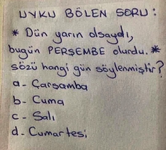 UYKU BÖLEN SORU:
* Dün yarın olsaydı,
bugün PERŞEMBE olurdu. *
sözü hangi gün söylenmiştir?
a- Çarşamba
b- Cuma
c- Salı
d- Cumartesi